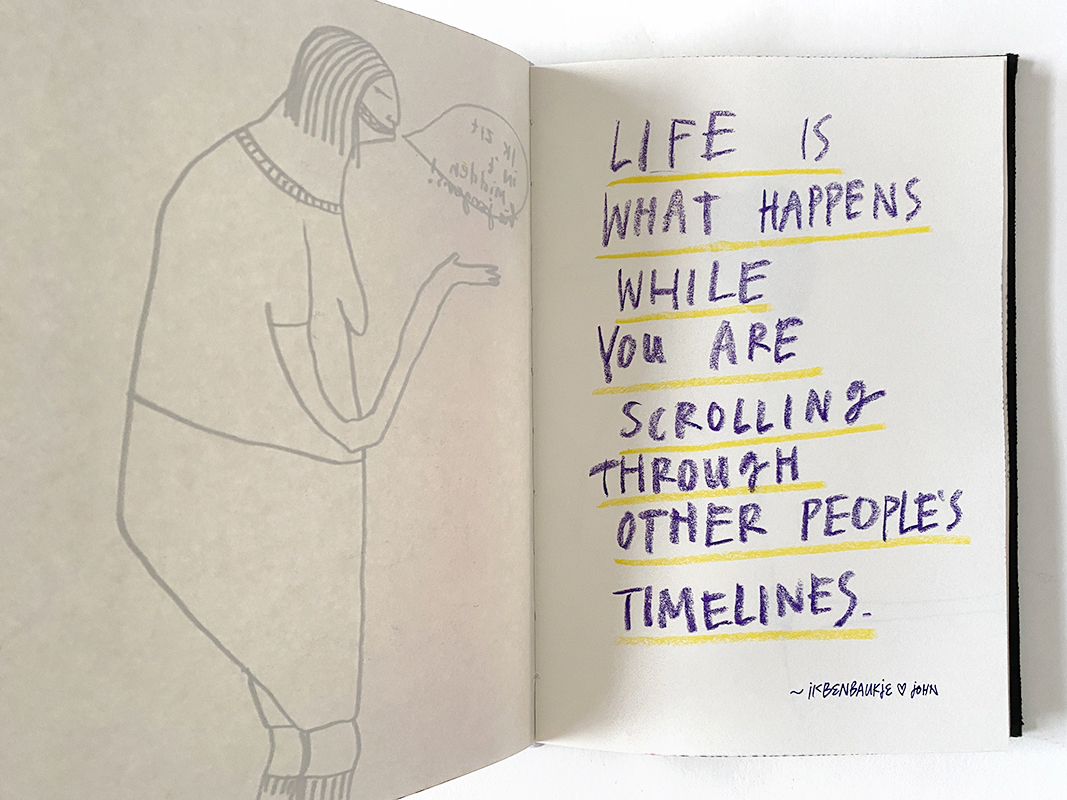 IK ZIT
in 't
midden!
LIFE IS
WHAT HAPPENS
WHILE
YOU ARE
SCROLLING
THROUGH
OTHER PEOPLE'S
TIMELINES.
~ IKBENBAUKJE ♡ JOHN